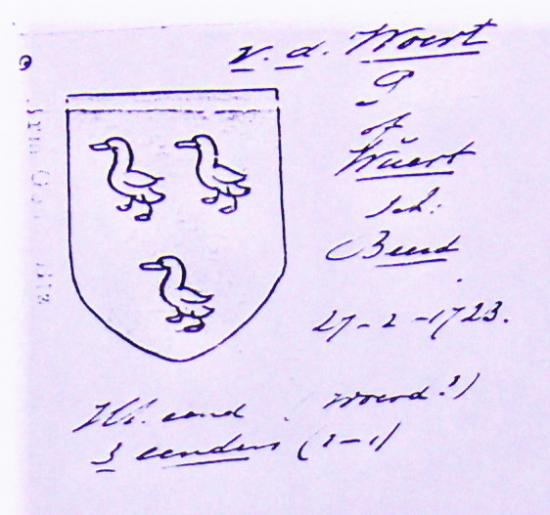 v. d. Woert
of
Wŭert
sch:
Buud
27-2-1723.
eend woerd?)
3 eenden (2-1)